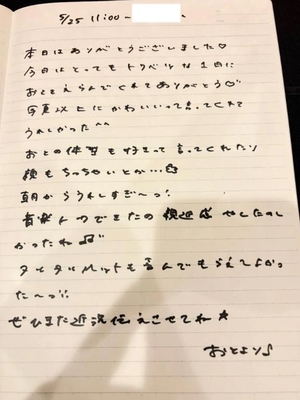 5/25 11:00 ~
本日はありがとうございました♡
今日はとってもトクベツな1日に
おとえらんでくれてありがとう♡
写真以上にかわいいって言ってくれて
うれしかった^^
おとの体型も好きって言ってくれたり
顔もちっちゃいとか…
朝からうれしすぎ〜っ!
音楽トークできたの親近感やしたのし
かったね♫
タルタルホットも喜んでもらえてよかっ
た〜っ!!
ぜひまた近況伝えさせてね★
おとより♪